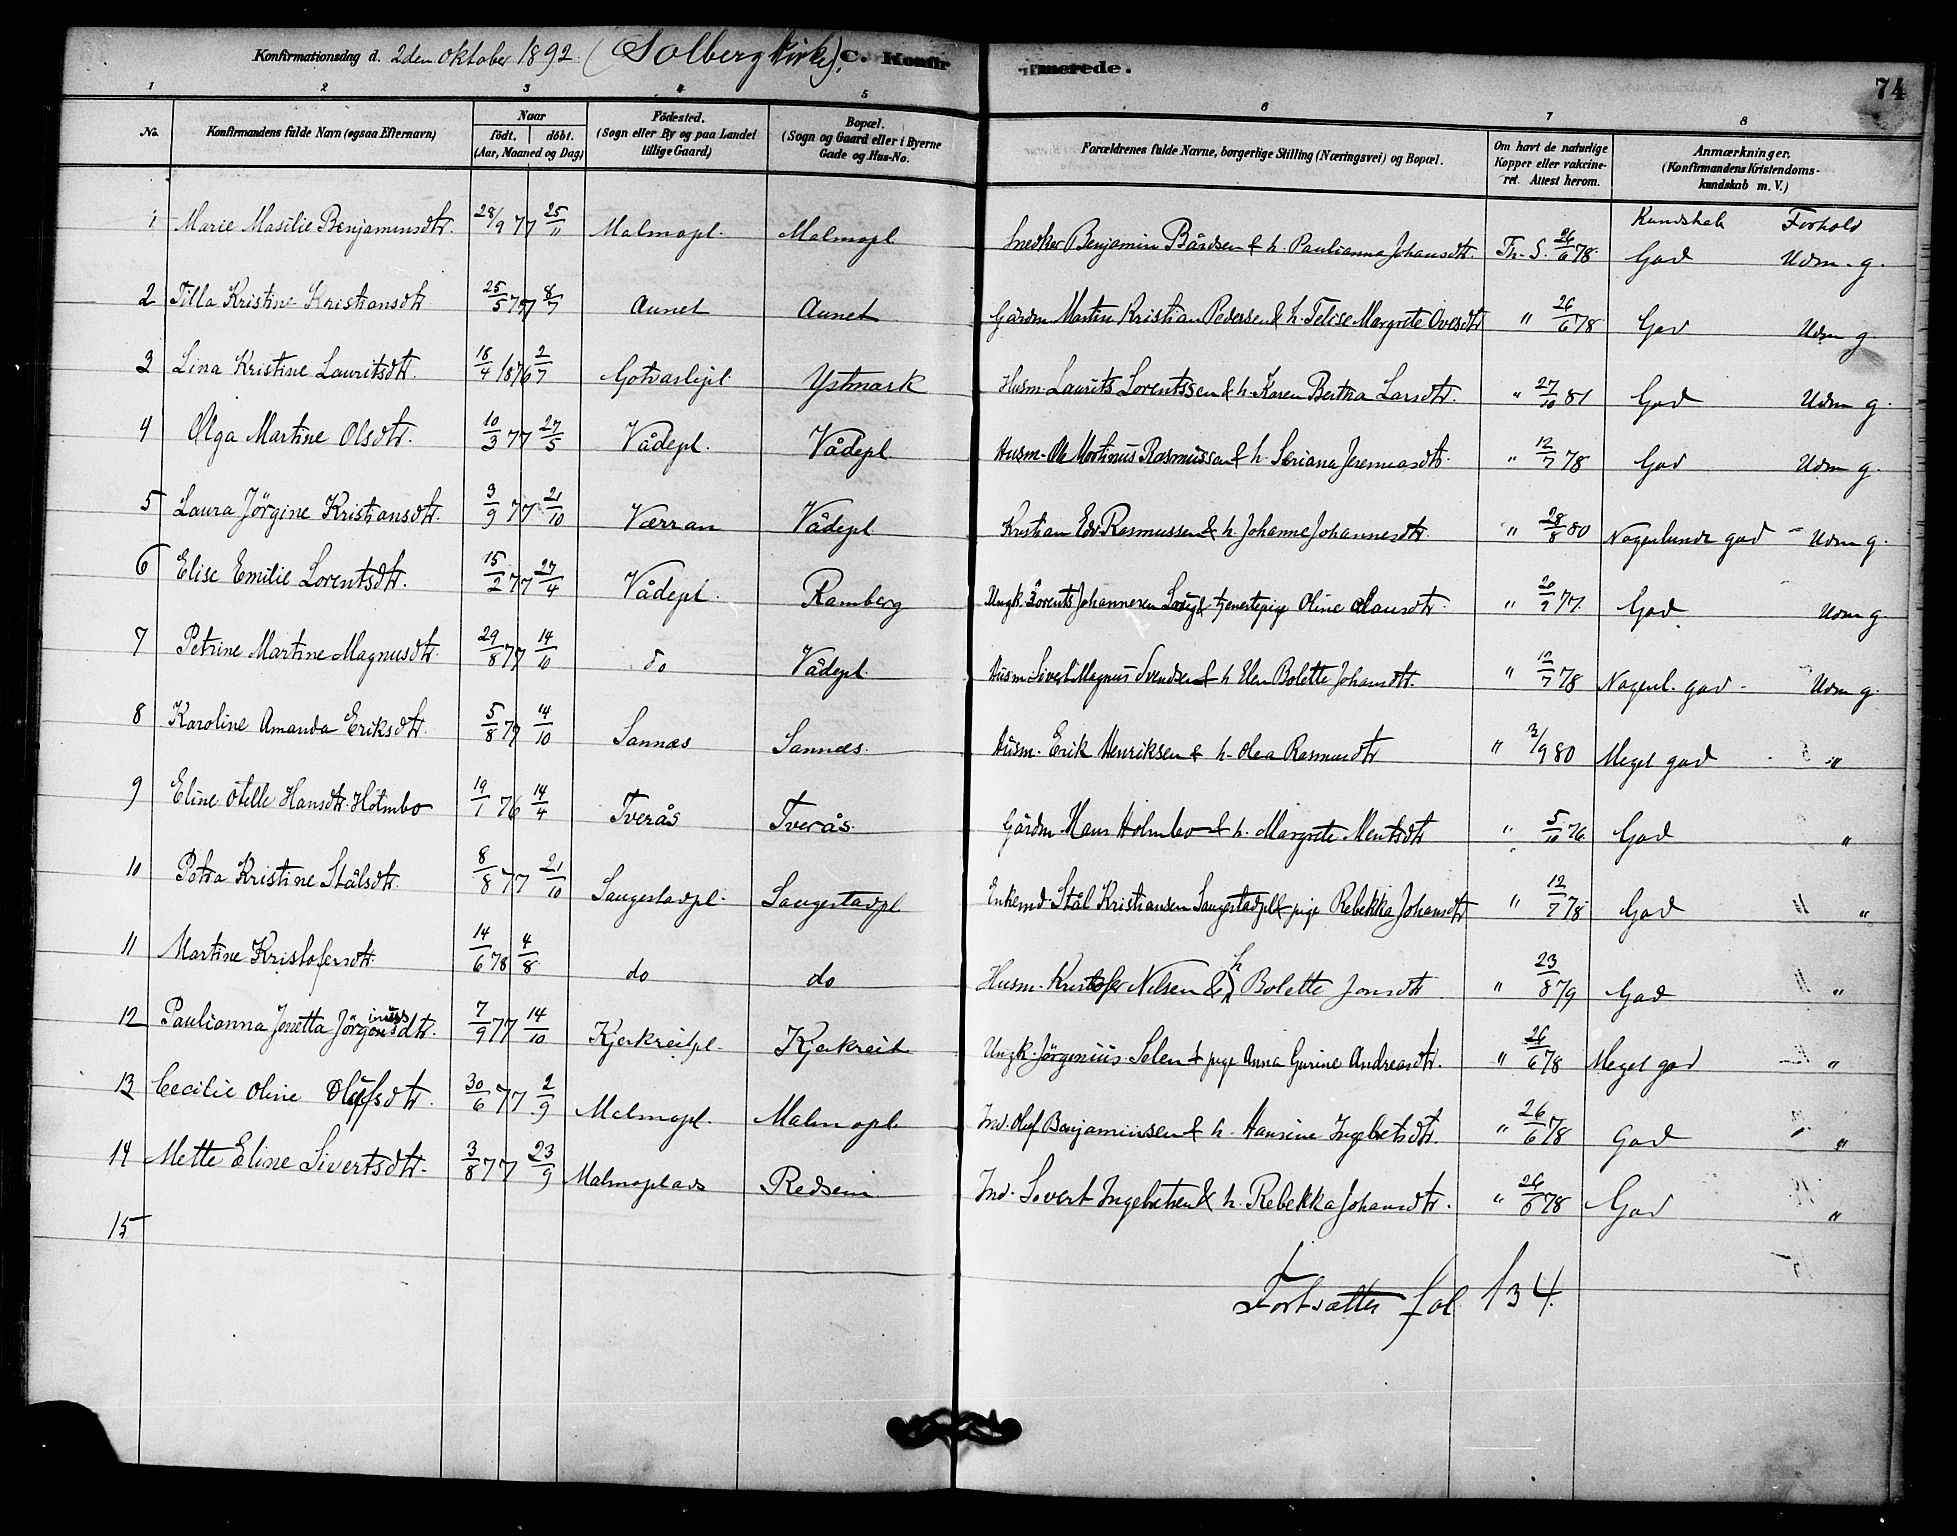 Konfirmationsdag d. 2den Oktober 1892 (Solberg Kirke). C. Konfirmerede. 74
1 2 3 4 5 6 7 8
No. Konfirmandens fulde Navn (ogsaa Efternavn) Naar født. døbt. (Aar, Maaned og Dag) Fødested. (Sogn eller By og paa Landet tillige Gaard) Bopæl. (Sogn og Gaard eller i Byerne Gade og Hus-No. Forældrenes fulde Navne, borgerlige Stilling (Næringsvei) og Bopæl. Om havt de naturlige Kopper eller vakcineret. Attest herom. Anmærkninger. (Konfirmandens Kristendomskundskab m. V.)
Kundskab Forhold
1 Marie Masilie Benjaminsdtr. 28/9 77 25/11 Malmopl. Malmopl Snedker Benjamin Bårdsen & h. Paulianna Johansdtr. Th. S. 26/6 78 God Udm. g.
2 Tilla Kristine Kristiansdtr 25/5 77 8/7 Aunet Aunet Gårdm Martin Kristian Pedersen & h. Telise Margrete Ovesdtr " 26/6 78 God Udm g.
3 Lina Kristine Lauritsdtr. 18/4 1876 2/7 Gotvaslipl. Ystmark Husm. Laurits Lorentssen & h. Karen Bertha Larsdtr. " 27/10 81 God Udm g.
4 Olga Martine Olsdtr. 10/3 77 27/5 Vådepl. Vådepl Husm. Ole Martinus Rasmussen & h. Seriana Jeremiasdtr. " 12/7 78 God Udm g.
5 Laura Jörgine Kristiansdtr. 3/9 77 21/10 Værran Vådepl Kristian Edv. Rasmussen & h. Johanne Johannesdtr. " 28/8 80 Nogenlunde god - Udm g.
6 Elise Emilie Lorentsdtr. 15/2 77 27/4 Vådepl. Ramberg Ungk. Lorents Johannesen & tjenestepige Oline Olausdtr. " 20/9 77. God Udm g.
7 Petrine Martine Magnusdtr. 29/8 77 14/10 do Vådepl. Husm. Sivert Magnus Svendsen & h Elen Bolette Johansdtr. " 12/7 78 Nogenl. god - Udm g.
8 Karoline Amanda Eriksdtr. 5/8 77 14/10 Sannæs Sannæs. Husm. Erik Henriksen & h. Olea Rasmusdtr " 2/9 80 Meget god "
9 Eline Otelle Hansdtr. Holmbo 19/1 76 14/4 Tverås Tverås. Gårdm Hans Holmbo & h. Margrete Mentsdtr " 5/10 76 God "
10 Petra Kristine Stålsdtr. 8/8 77 21/10 Saugestadpl. Saugestadpl Enkemd. Stål Kristiansen Saugestadpl & pige Rebekka Johansdtr " 12/7 78 God "
11 Martine Kristofersdtr. 14/6 78 4/8 do do Husm. Kristofer Nilsen & h Bolette Jonsdtr " 23/8 79 God "
12 Paulianna Jonetta Jörginiusdtr. 7/9 77 14/10 Kjerkreitpl. Kjerkreit Ungk. Jörginius Selen & pige Anna Gurine Andreasdtr. " 26/6 78 Meget god "
13 Cecilie Oline Olufsdtr. 30/6 77 2/9 Malmopl. Malmopl. Ind. Oluf Benjaminsen & h. Hansine Ingebretsdtr. " 26/6 78 God "
14 Mette Eline Sivertsdtr. 3/8 77 23/9 Malmoplads Redsem Ind. Sivert Ingebretsen & h. Rebekka Johansdtr. " 26/6 78 God "
15
Fortsættes fol 134.